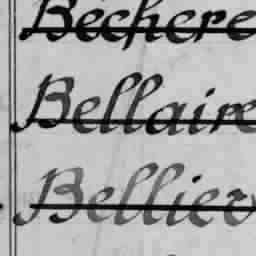 Béchere
Bellaire
Bellier